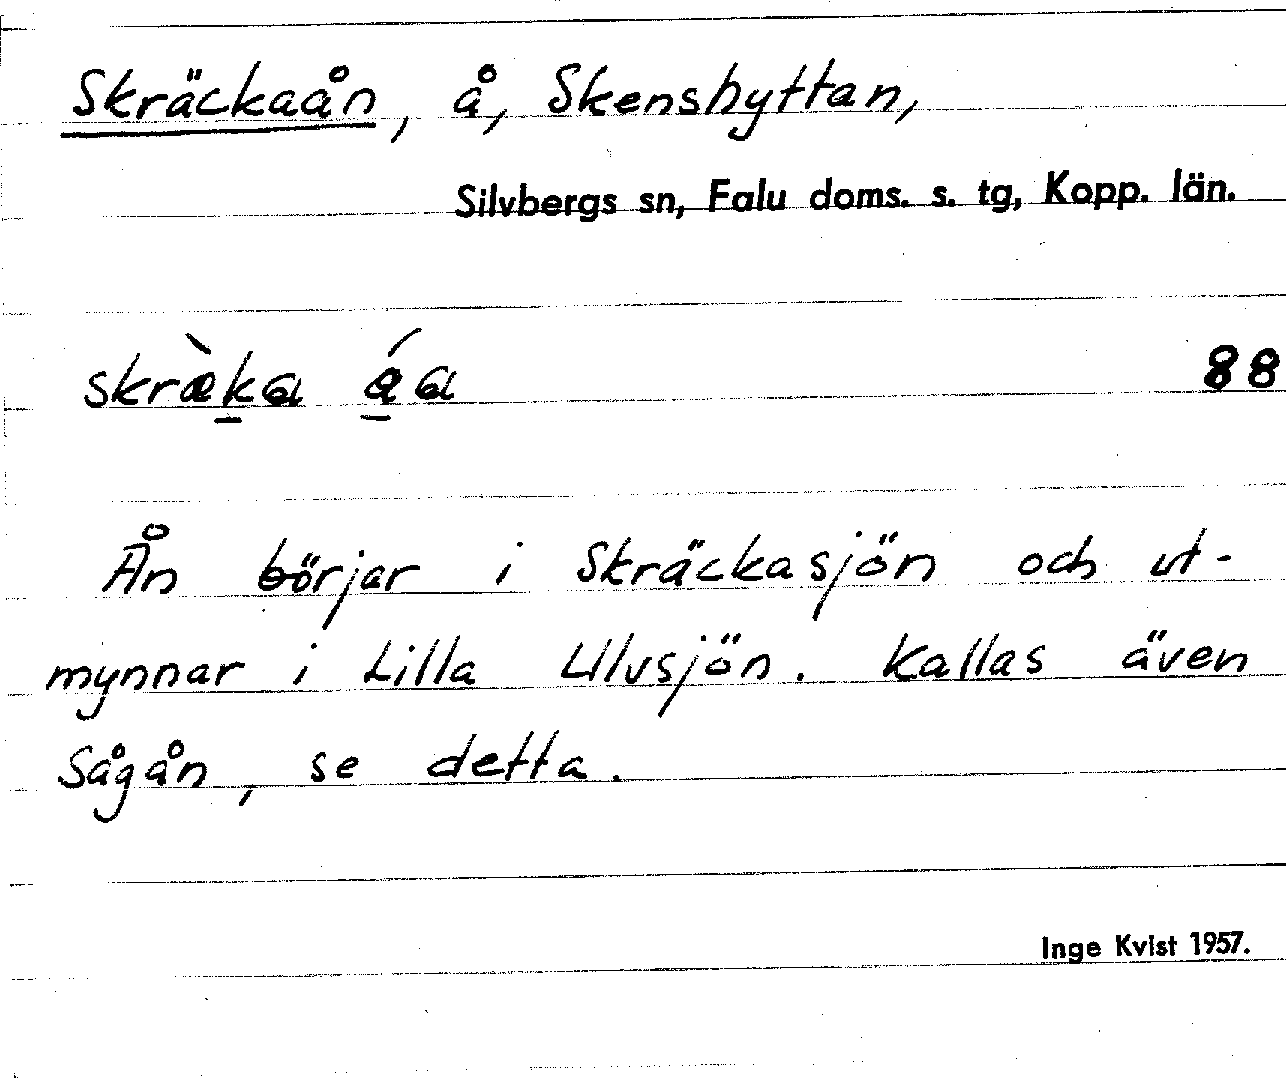 Skräckaån, å, Skenshyttan,
Silvbergs sn, Falu doms. s. tg, Kopp. län.
skræ̀ka 88
Ån börjar i Skräckasjön och ut-
mynnar i Lilla Ulvsjön. Kallas även
Sågån, se detta.
Inge Kvist 1957.